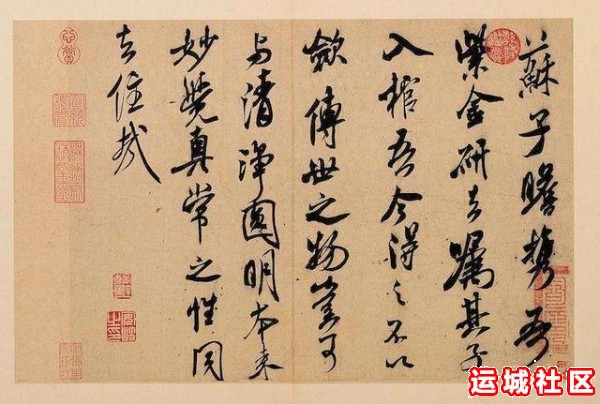 蘇子瞻携吾
紫金研去嘱其子
入棺吾今得之不以
歛傳世之物豈可
与清浄圓明本来
妙覺真常之性同
去住哉
运城社区